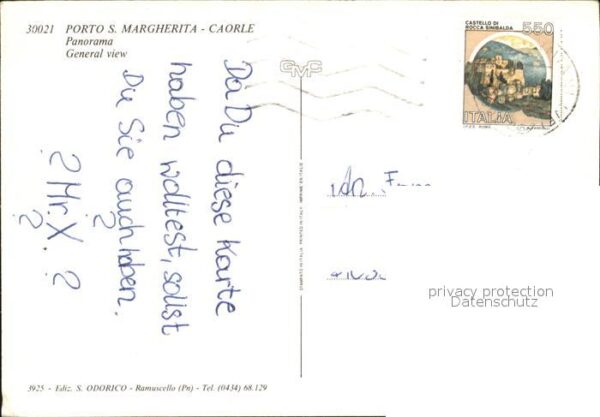 30021 PORTO S. MARGHERITA - CAORLE
Panorama
General view
Da Du diese Karte
haben wolltest, sollst
Du Sie auch haben.
? ?
? Mr. X. ?
CASTELLO DI
ROCCA SINIBALDA
550
ITALIA
GMC
STAMPATO IN ITALIA - PRINTED IN ITALY - IMPRIME EN ITALIE
privacy protection
Datenschutz
3925 - Ediz. S. ODORICO - Ramuscello (Pn) - Tel. (0434) 68.129